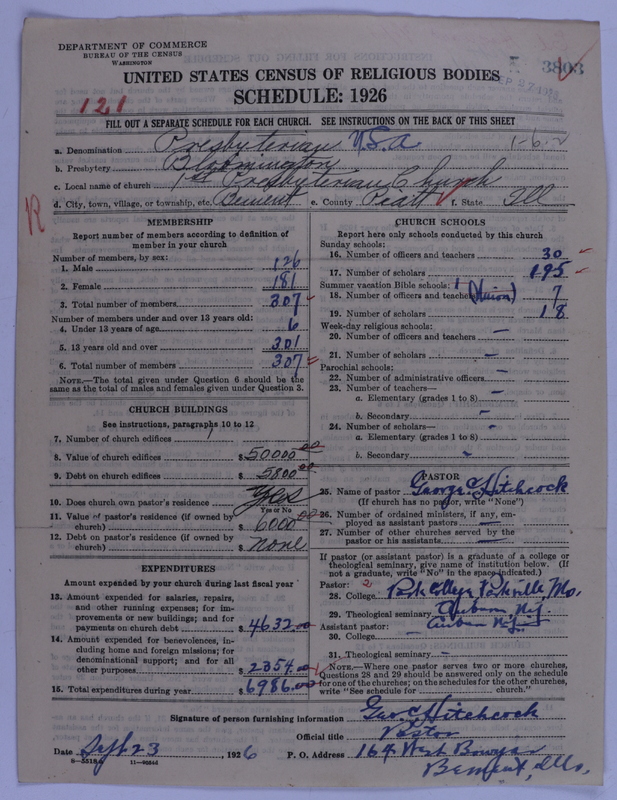 DEPARTMENT OF COMMERCE
BUREAU OF THE CENSUS
WASHINGTON
3803
UNITED STATES CENSUS OF RELIGIOUS BODIES
SCHEDULE: 1926
121
FILL OUT A SEPARATE SCHEDULE FOR EACH CHURCH. SEE INSTRUCTIONS ON THE BACK OF THIS SHEET
a. Denomination Presbyterian U.S.A 1-6-2
b. Presbytery Bloomington
c. Local name of church 1st Presbyterian Church
d. City, town, village, or township, etc. Bement e. County Piatt f. State Ill
R
MEMBERSHIP
Report number of members according to definition of member in your church
Number of members, by sex:
1. Male 126
2. Female 181
3. Total number of members 307
Number of members under and over 13 years old:
4. Under 13 years of age 6
5. 13 years old and over 301
6. Total number of members 307
NOTE.—The total given under Question 6 should be the
same as the total of males and females given under Question 3.
CHURCH BUILDINGS
See instructions, paragraphs 10 to 12
7. Number of church edifices 1
8. Value of church edifices $ 50000 00
9. Debt on church edifices $ 5800 00
10. Does church own pastor's residence Yes
Yes or No
11. Value of pastor's residence (if owned by
church) $ 6000 00
12. Debt on pastor's residence (if owned by
church) $ none
EXPENDITURES
Amount expended by your church during last fiscal year
13. Amount expended for salaries, repairs,
and other running expenses; for im-
provements or new buildings; and for
payments on church debt $ 4632.00
14. Amount expended for benevolences, in-
cluding home and foreign missions; for
denominational support; and for all
other purposes $ 2354.00
15. Total expenditures during year $ 6986.00
CHURCH SCHOOLS
Report here only schools conducted by this church
Sunday schools:
16. Number of officers and teachers 30
17. Number of scholars 195
Summer vacation Bible schools: 1
18. Number of officers and teachers (Union) 7
19. Number of scholars 18
Week-day religious schools:
20. Number of officers and teachers —
21. Number of scholars —
Parochial schools:
22. Number of administrative officers —
23. Number of teachers—
a. Elementary (grades 1 to 8) —
b. Secondary —
24. Number of scholars—
a. Elementary (grades 1 to 8) —
b. Secondary —
PASTOR
25. Name of pastor George C Hitchcock
(If church has no pastor, write "None")
26. Number of ordained ministers, if any, em-
ployed as assistant pastors —
27. Number of other churches served by the
pastor or his assistants —
If pastor (or assistant pastor) is a graduate of a college or
theological seminary, give name of institution below. (If
not a graduate, write "No" in the space indicated.)
Pastor: 2
28. College Park College Parkville Mo.
29. Theological seminary Auburn N.Y.
Assistant pastor: Auburn N.Y.
30. College —
31. Theological seminary —
NOTE.—Where one pastor serves two or more churches,
Questions 28 and 29 should be answered only on the schedule
for one of the churches; on the schedules for the other churches,
write "See schedule for church."
Signature of person furnishing information Geo C Hitchcock
Official title Pastor
Date Sept 23, 1926 P. O. Address 164 West Bowyer
Bement, Ills.
8-5518a 11-9554d